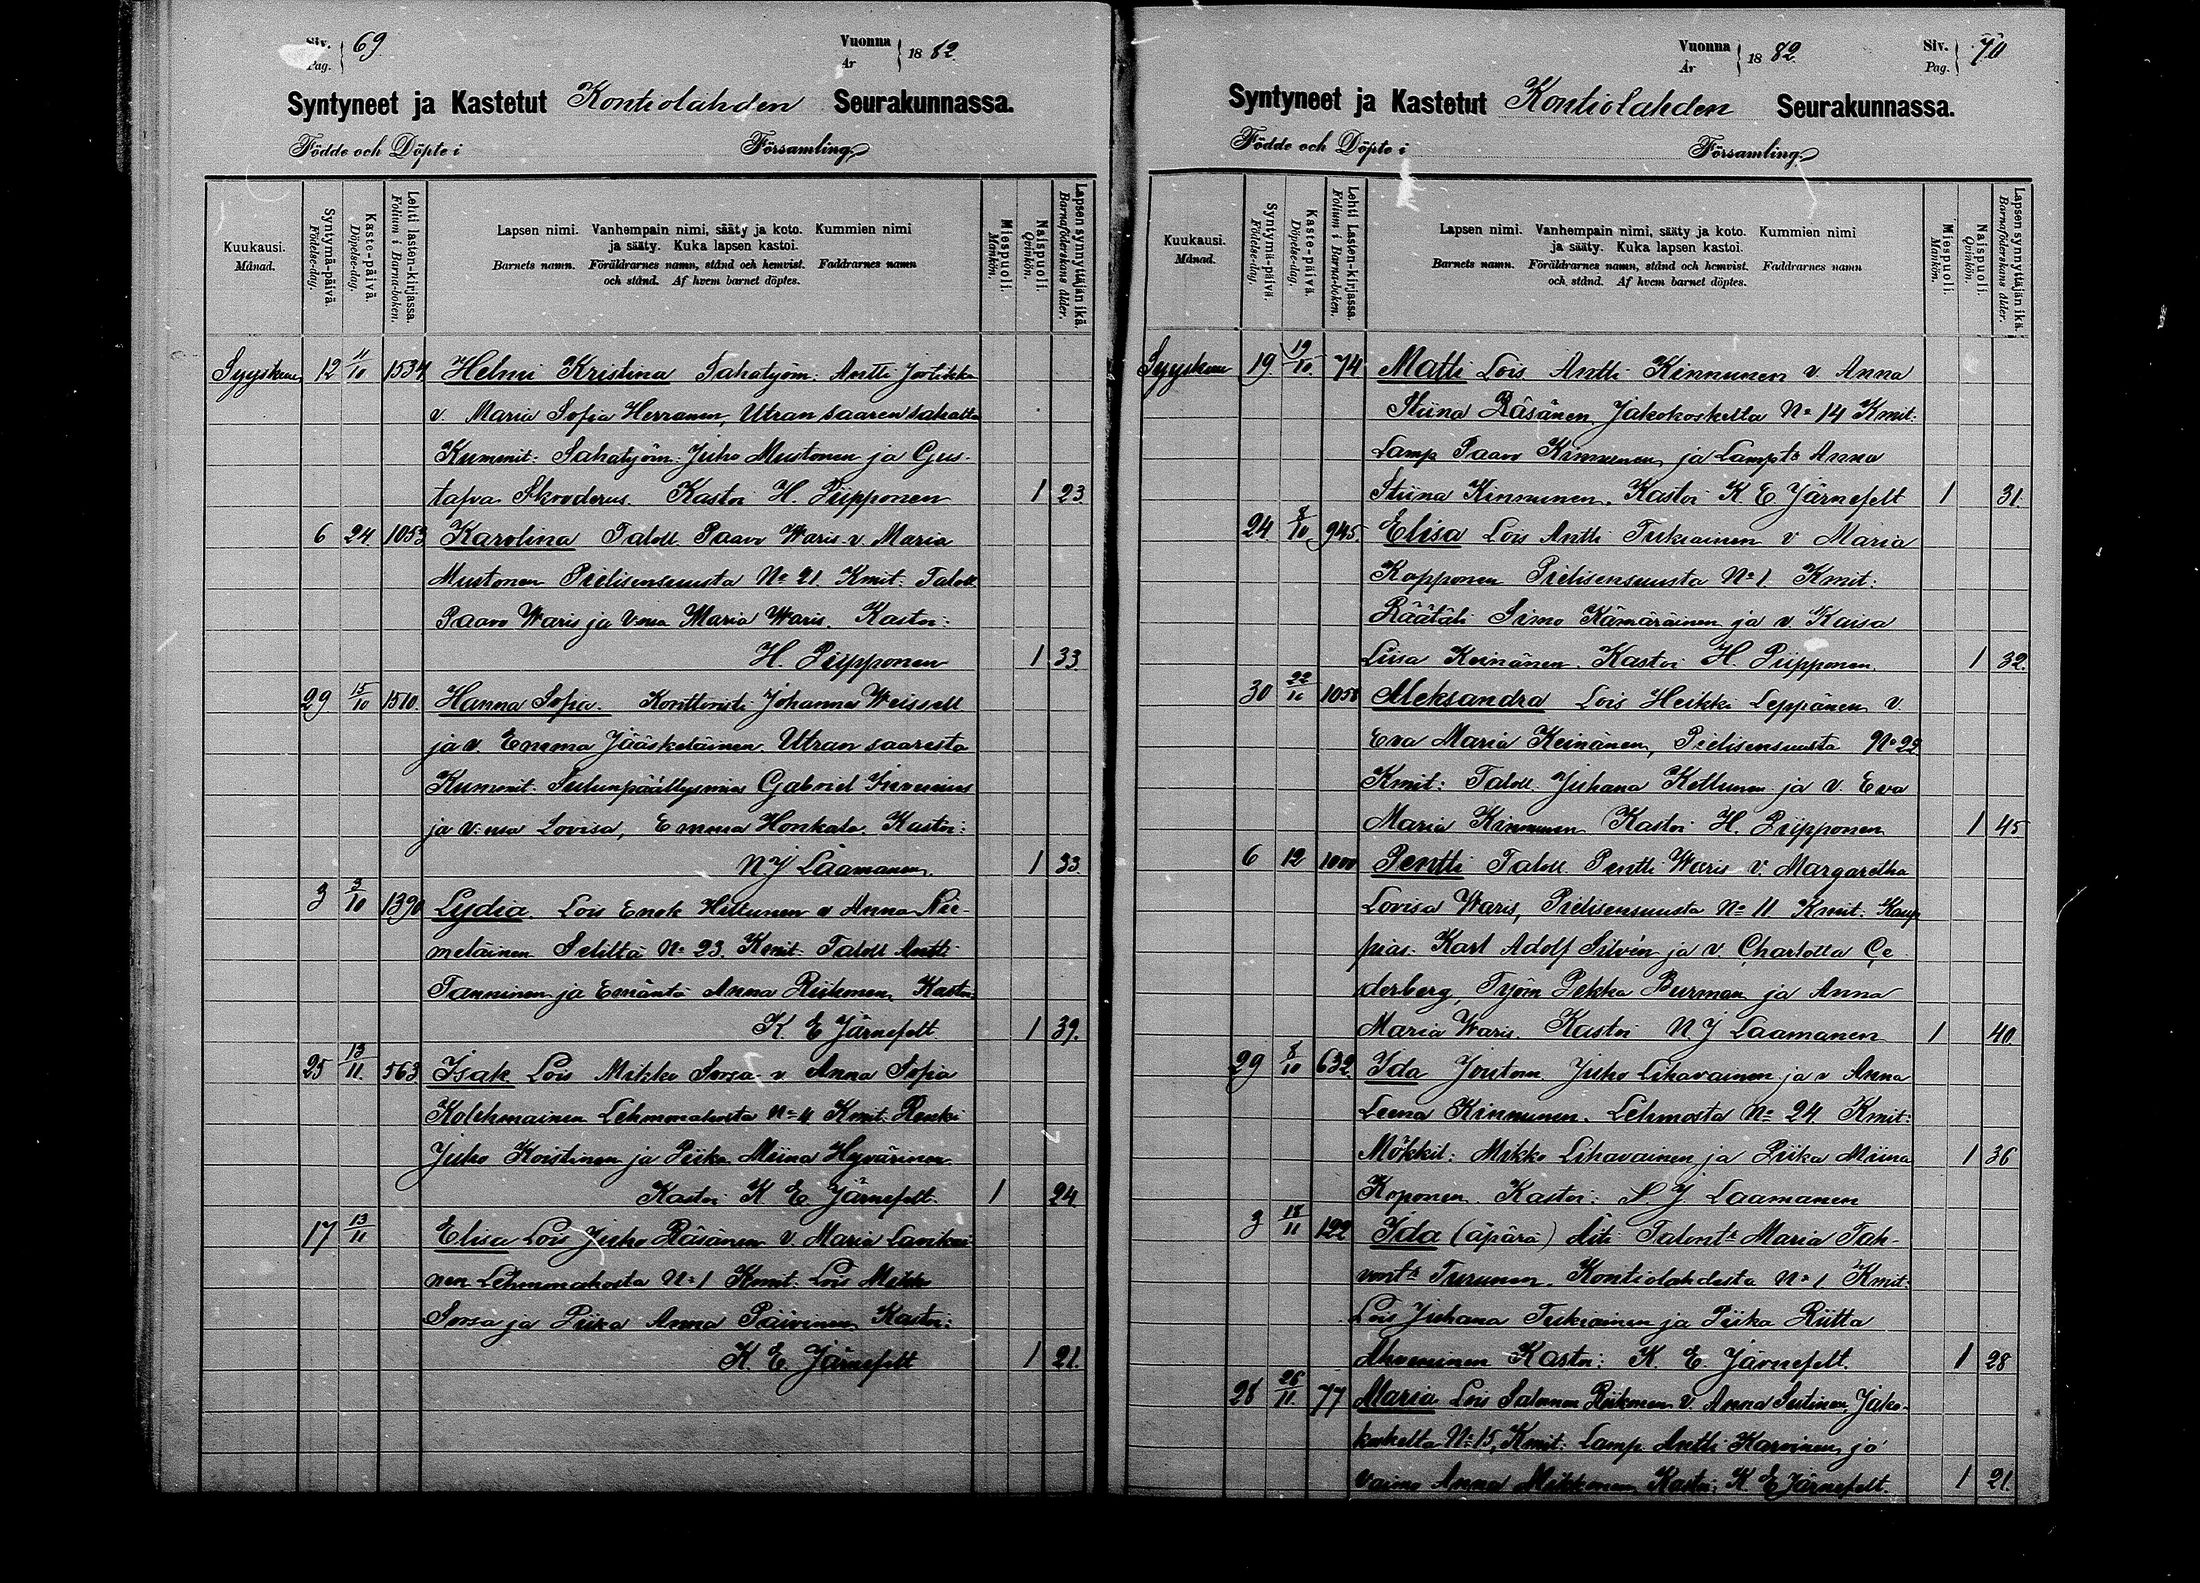 Siv. Pag. 69
Vuonna År 1882.
Syntyneet ja Kastetut Kontiolahden Seurakunnassa.
Födde och Döpte i Församling
Kuukausi. Månad.
Syntymä-päivä. Födelse-dag.
Kaste-päivä. Döpelse-dag.
Lehti lasten-kirjassa. Folium i Barna-boken.
Lapsen nimi. Vanhempain nimi, sääty ja koto. Kummien nimi
ja sääty. Kuka lapsen kastoi.
Barnets namn. Föräldrarnes namn, stånd och hemvist. Faddrarnes namn
och stånd. Af hvem barnet döptes.
Miespuoli. Mankön.
Naispuoli. Qvinkön.
Lapsen synnyttäjän ikä. Barnaföderskans ålder.
Syyskuu 12 11/10 1534 Helmi Kristina Sahatyöm: Antti
v. Maria Sofia Herranen, Utran saaren sahalta
Kummit: Sahatyöm: Juho Mustonen ja Gus-
tafva Skroderus. Kastoi H. Piipponen 1 23
6 24 1053 Karolina Taloll Paavo Waris v. Maria
Mustonen Pielisensuusta No 21 Kmit: Taloll
Paavo Waris ja v:nsa Maria Waris. Kastoi:
H. Piipponen 1 33
29 15/10 1510. Hanna Sofia. Konttoristi Johannes Weissell
ja v. Emma Jääskeläinen Utran saaresta
Kummit: Sulunpäällysmies Gabriel
ja v:nsa Lovisa, Emma Honkala. Kastoi:
N J Laamanen. 1 33
3 3/10 1390 Lydia. Lois Enok Hiltunen v Anna Nie-
meläinen Seliltä No 23. Kmit: Taloll Antti
Tanninen ja Emäntä Anna Riikonen, Kastoi:
K. E Järnefelt 1 39.
25 13/11. 563 Isak Lois Mikko Sorsa v. Anna Sofia
Kolehmainen Lehmonahosta No 4 Kmit: Renki
Juho Koistinen ja Piika Miina Hyvärinen.
Kastoi K E. Järnefelt 1 24.
17 13/11 Elisa Lois Juho Räsänen v. Maria Lauka-
nen Lehmonahosta No 1 Kmit: Lois Mikko
Sorsa ja Piika Anna Päivinen Kastoi:
K. E. Järnefelt 1 21.
Vuonna År 1882.
Siv. Pag. 70
Syntyneet ja Kastetut Kontiolahden Seurakunnassa.
Födde och Döpte i Församling
Kuukausi. Månad.
Syntymä-päivä. Födelse-dag.
Kaste-päivä. Döpelse-dag.
Lehti Lasten-kirjassa. Folium i Barna-boken.
Lapsen nimi. Vanhempain nimi, sääty ja koto. Kummien nimi
ja sääty. Kuka lapsen kastoi.
Barnets namn. Föräldrarnes namn, stånd och hemvist. Faddrarnes namn
och stånd. Af hvem barnet döptes.
Miespuoli. Mankön.
Naispuoli. Qvinkön.
Lapsen synnyttäjän ikä. Barnaföderskans ålder.
Syyskuu 19 19/10. 74 Matti Lois Antti Kinnunen v Anna
Stiina Räsänen, Jakokoskelta No 14 Kmit:
Lamp Paavo Kinnunen ja Lampts Anna
Stiina Kinnunen. Kastoi K E Järnefelt 1 31.
24. 8/10 945. Elisa Lois Antti Tukiainen v Maria
Kapponen Pielisensuusta No 1 Kmit:
Räätäli Simo Kämäräinen ja v Kaisa
Liisa Keinänen. Kastoi H Piipponen. 1 32.
30 22/10 1058 Aleksandra Lois Heikki Leppänen v
Eva Maria Keinänen, Pielisensuusta No 22
Kmit: Taloll Juhana Kettunen ja v. Eva
Maria Kinnunen Kastoi H. Piipponen 1 45
6 12 1000 Pentti Taloll Pentti Waris v. Margaretha
Lovisa Waris, Pielisensuusta No 11 Kmit: Kaup
pias Karl Adolf Silvén ja v. Charlotta Ce
derberg, Työm Pekka Burman ja Anna
Maria Waris. Kastoi N. J Laamanen 1 40
29 8/10 632. Ida Joutom Juho Lihavainen ja v Anna
Leena Kinnunen. Lehmosta No 24 Kmit:
Mökkil: Mikko Lihavainen ja Piika Miina 1 36
Koponen. Kastoi: N J Laamanen
3 18/11 122 Ida (äpärä) Äiti Talontr Maria Tah-
vonts Turunen. Kontiolahdesta No 1 Kmit:
Lois Juhana Tukiainen ja Piika Riitta
Ahveninen Kastoi: K. E. Järnefelt. 1 28
28 26/11. 77 Maria Lois Salomon Riikonen v. Anna Sutinen, Jako-
koskelta No 15, Kmit: Lamp Antti Karvinen ja
vaimo Anna Mikkonen Kastoi: K E Järnefelt. 1 21.